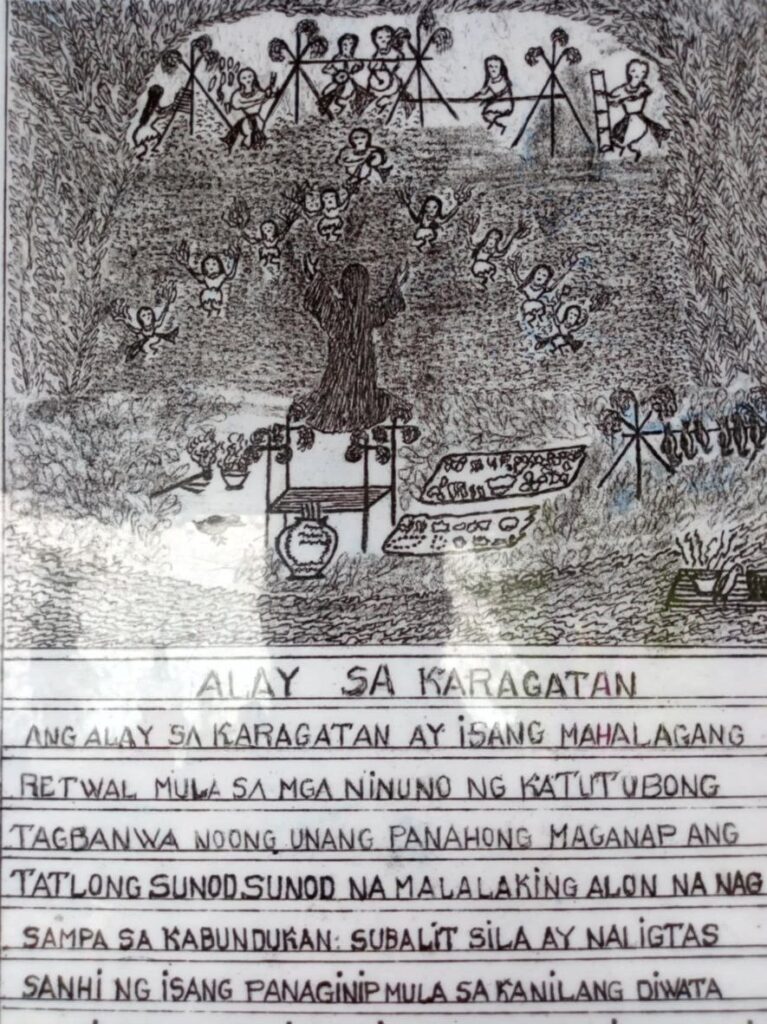 ALAY SA KARAGATAN
ANG ALAY SA KARAGATAN AY ISANG MAHALAGANG
RETWAL MULA SA MGA NINUNO NG KATUTUBONG
TAGBANWA NOONG UNANG PANAHONG MAGANAP ANG
TATLONG SUNOD.SUNOD NA MALALAKING ALON NA NAG
SAMPA SA KABUNDUKAN: SUBALIT SILA AY NALIGTAS
SANHI NG ISANG PANAGINIP MULA SA KANILANG DIWATA